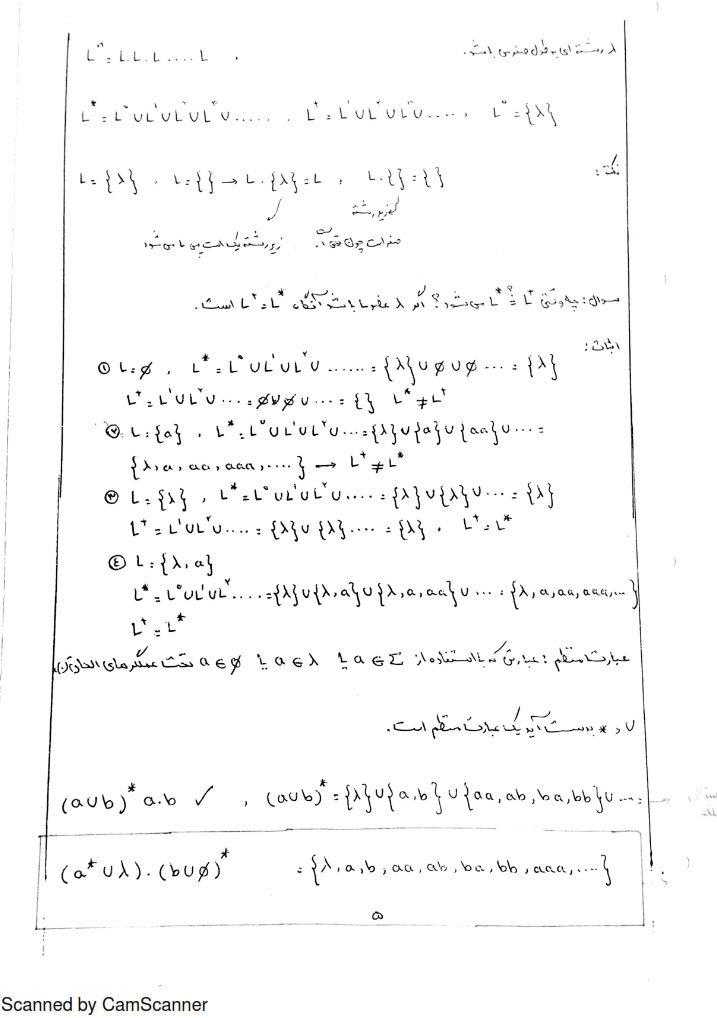 λ رشته ای به طول صفر می باشد. , Lⁿ = L.L.L....L
L* = L⁰ ∪ L¹ ∪ L² ∪ L³ ∪ ..... , L⁺ = L¹ ∪ L² ∪ L³ ∪ ...., L⁰ = {λ}
نکته:
L = {λ} , L = {} → L.{λ} = L , L.{} = {}
رشته
صفر است چون زیر رشته یک است می شود
سوال: چه وقتی L⁺ ≟ L* می شود؟ اگر λ عضو L باشد آنگاه L⁺ = L* است.
اثبات:
① L = ∅ , L* = L⁰ ∪ L¹ ∪ L² ∪ ...... = {λ} ∪ ∅ ∪ ∅ ... = {λ}
L⁺ = L¹ ∪ L² ∪ ... = ∅ ∪ ∅ ∪ ... = {} L* ≠ L⁺
② L = {a} , L* = L⁰ ∪ L¹ ∪ L² ∪ ... = {λ} ∪ {a} ∪ {aa} ∪ ... =
{λ, a, aa, aaa, ....} → L⁺ ≠ L*
③ L = {λ} , L* = L⁰ ∪ L¹ ∪ L² ∪ .... = {λ} ∪ {λ} ∪ ... = {λ}
L⁺ = L¹ ∪ L² ∪ .... = {λ} ∪ {λ} .... = {λ} , L⁺ = L*
④ L = {λ, a}
L* = L⁰ ∪ L¹ ∪ L² .... = {λ} ∪ {λ, a} ∪ {λ, a, aa} ∪ ... = {λ, a, aa, aaa, ...}
L⁺ = L*
عبارت منظم: عبارتی که با استفاده از a ∈ Σ یا a ∈ λ یا a ∈ ∅ تحت عملگرهای الحاق (.)،
∪ و * بدست آید یک عبارت منظم است.
(a∪b)* a.b ✓ , (a∪b)* = {λ} ∪ {a, b} ∪ {aa, ab, ba, bb} ∪ ... =
(a* ∪ λ).(b ∪ ∅)* = {λ, a, b, aa, ab, ba, bb, aaa, ....}
۵
Scanned by CamScanner